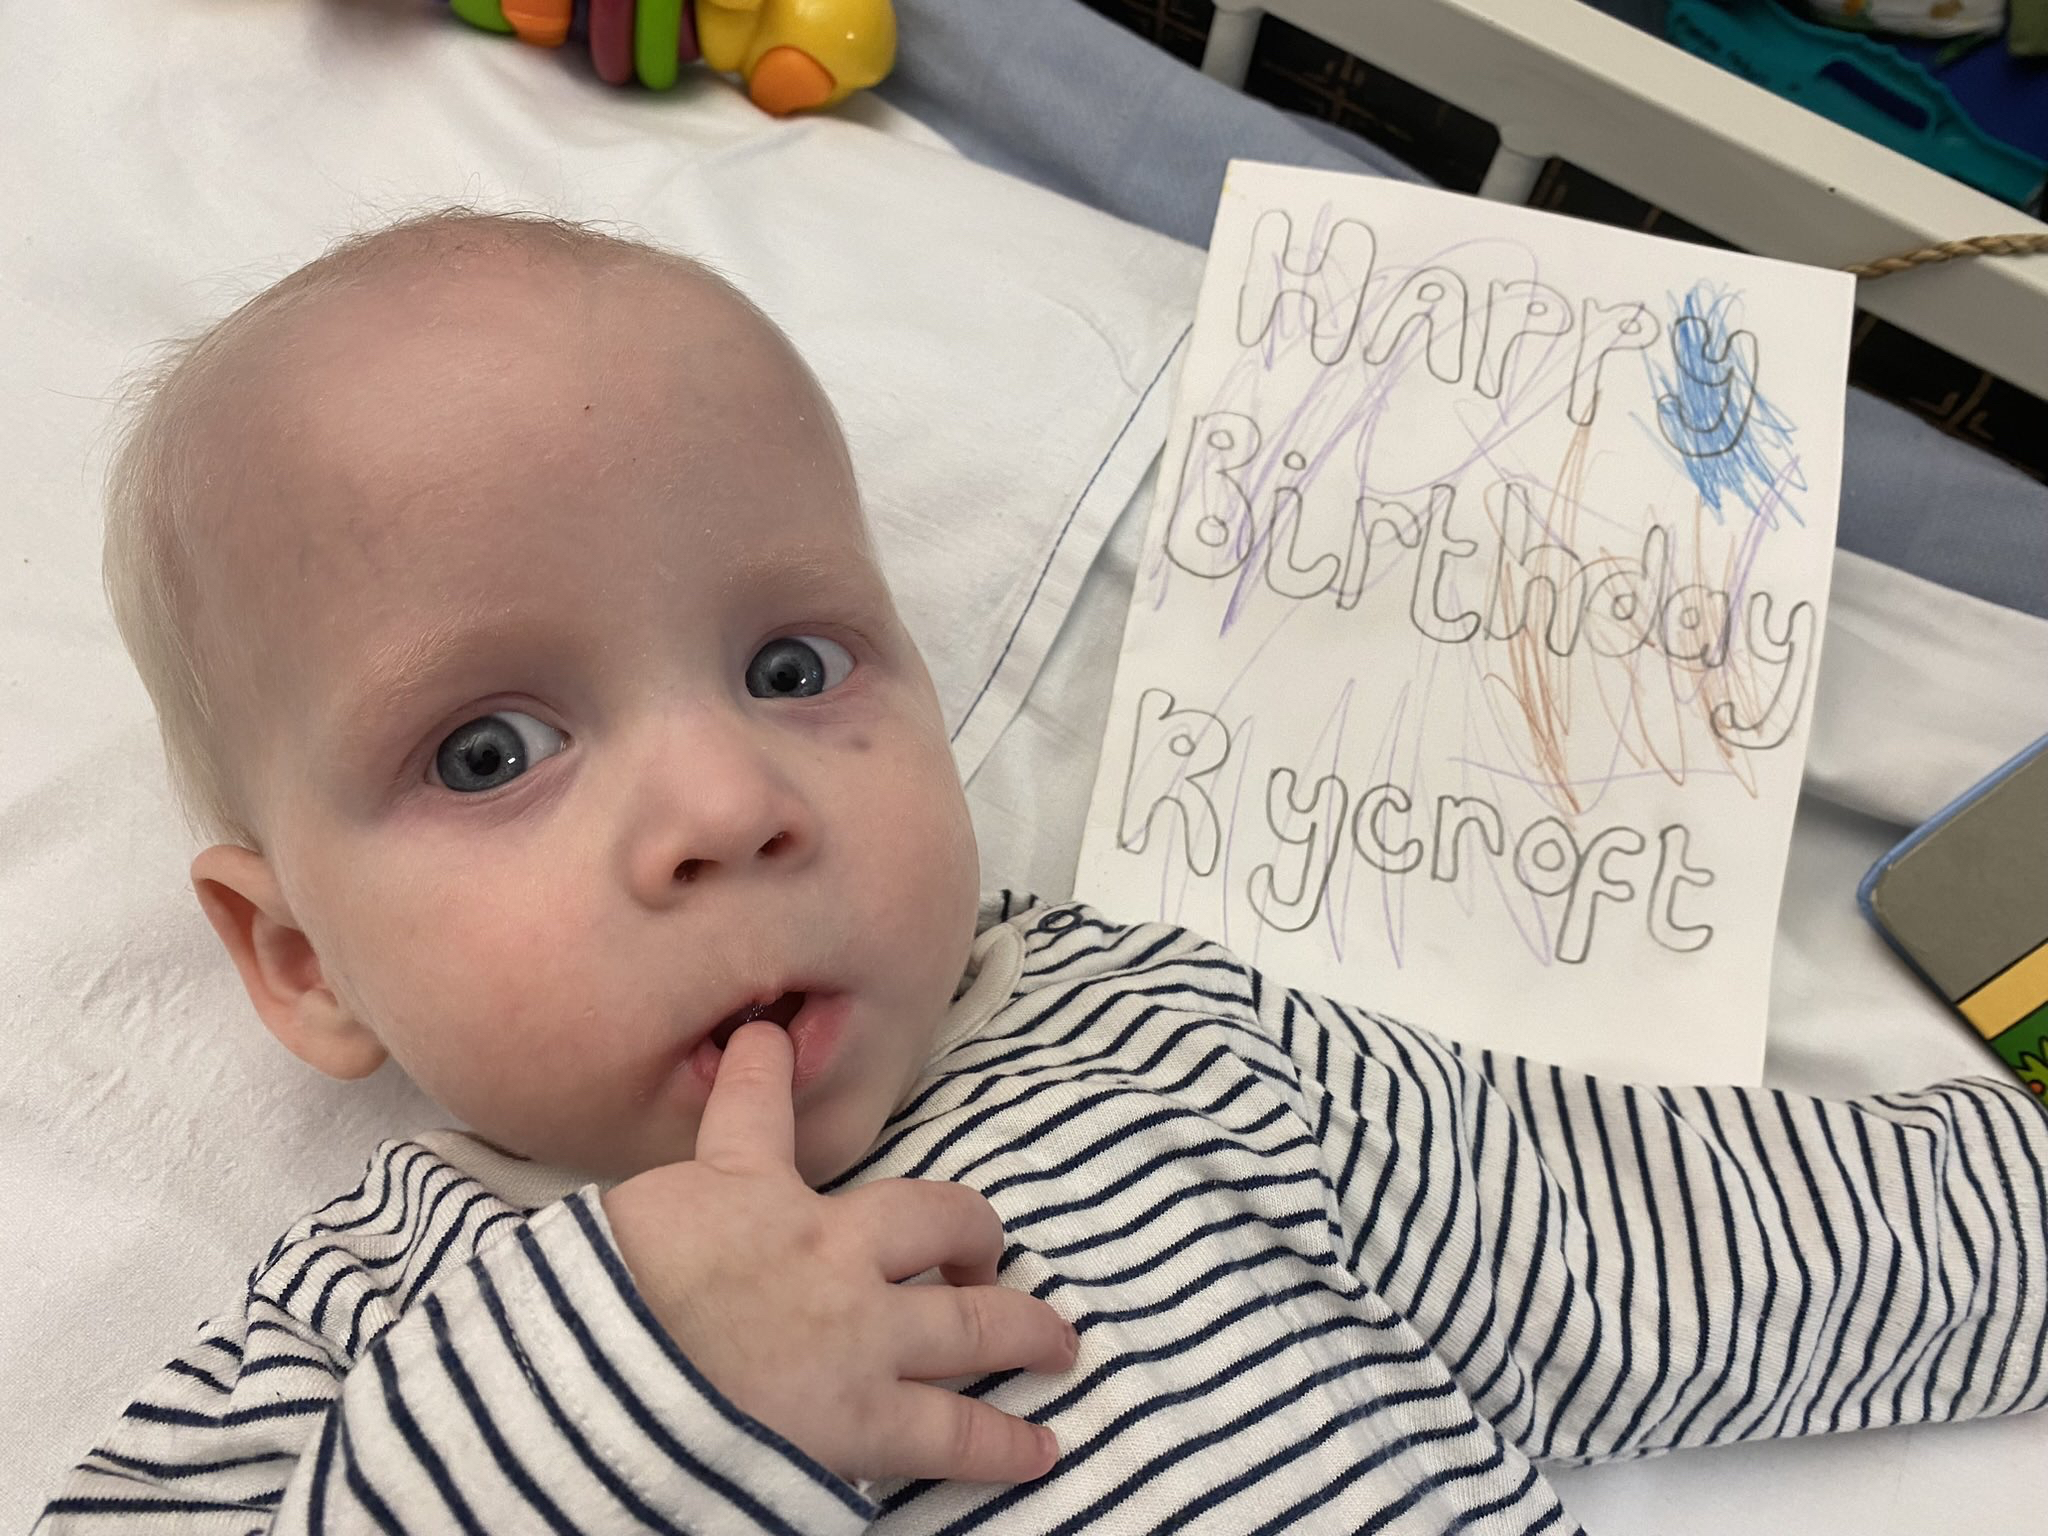 Happy
Birthday
Rycroft